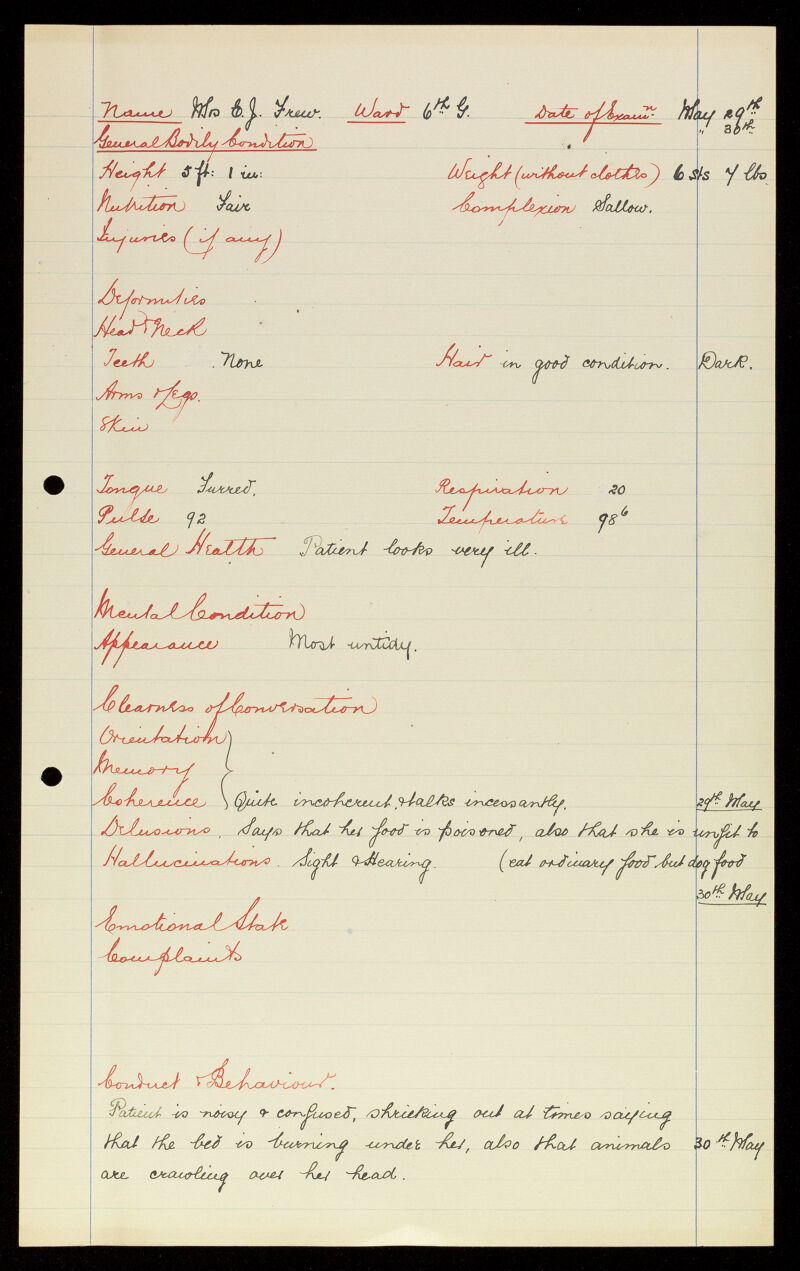 Name Mrs E. J. Frew. Ward 6th G. Date of Examn. May 29th
" 30th
General Bodily Condition
Height 5 ft: 1 in: Weight (without clothes) 6 sts 7 lbs
Nutrition Fair Complexion Sallow.
Injuries (if any)
Deformities
Head & Neck
Teeth . None Hair in good condition. Dark.
Arms & Legs.
Skin
Tongue Furred. Respiration 20
Pulse 92 Temperature 98⁶
General Health Patient looks very ill.
Mental Condition
Appearance Most untidy.
Clearness of Conversation
Orientation
Memory
Coherence Quite incoherent, & talks incessantly. 29th May
Delusions. Says that her food is poisoned, also that she is unfit to
Hallucinations. Sight & Hearing. (eat ordinary food but dog food
30th May
Emotional State
Complaints
Conduct & Behaviour.
Patient is noisy & confused, shrieking out at times saying
that the bed is burning under her, also that animals 30th May
are crawling over her head.